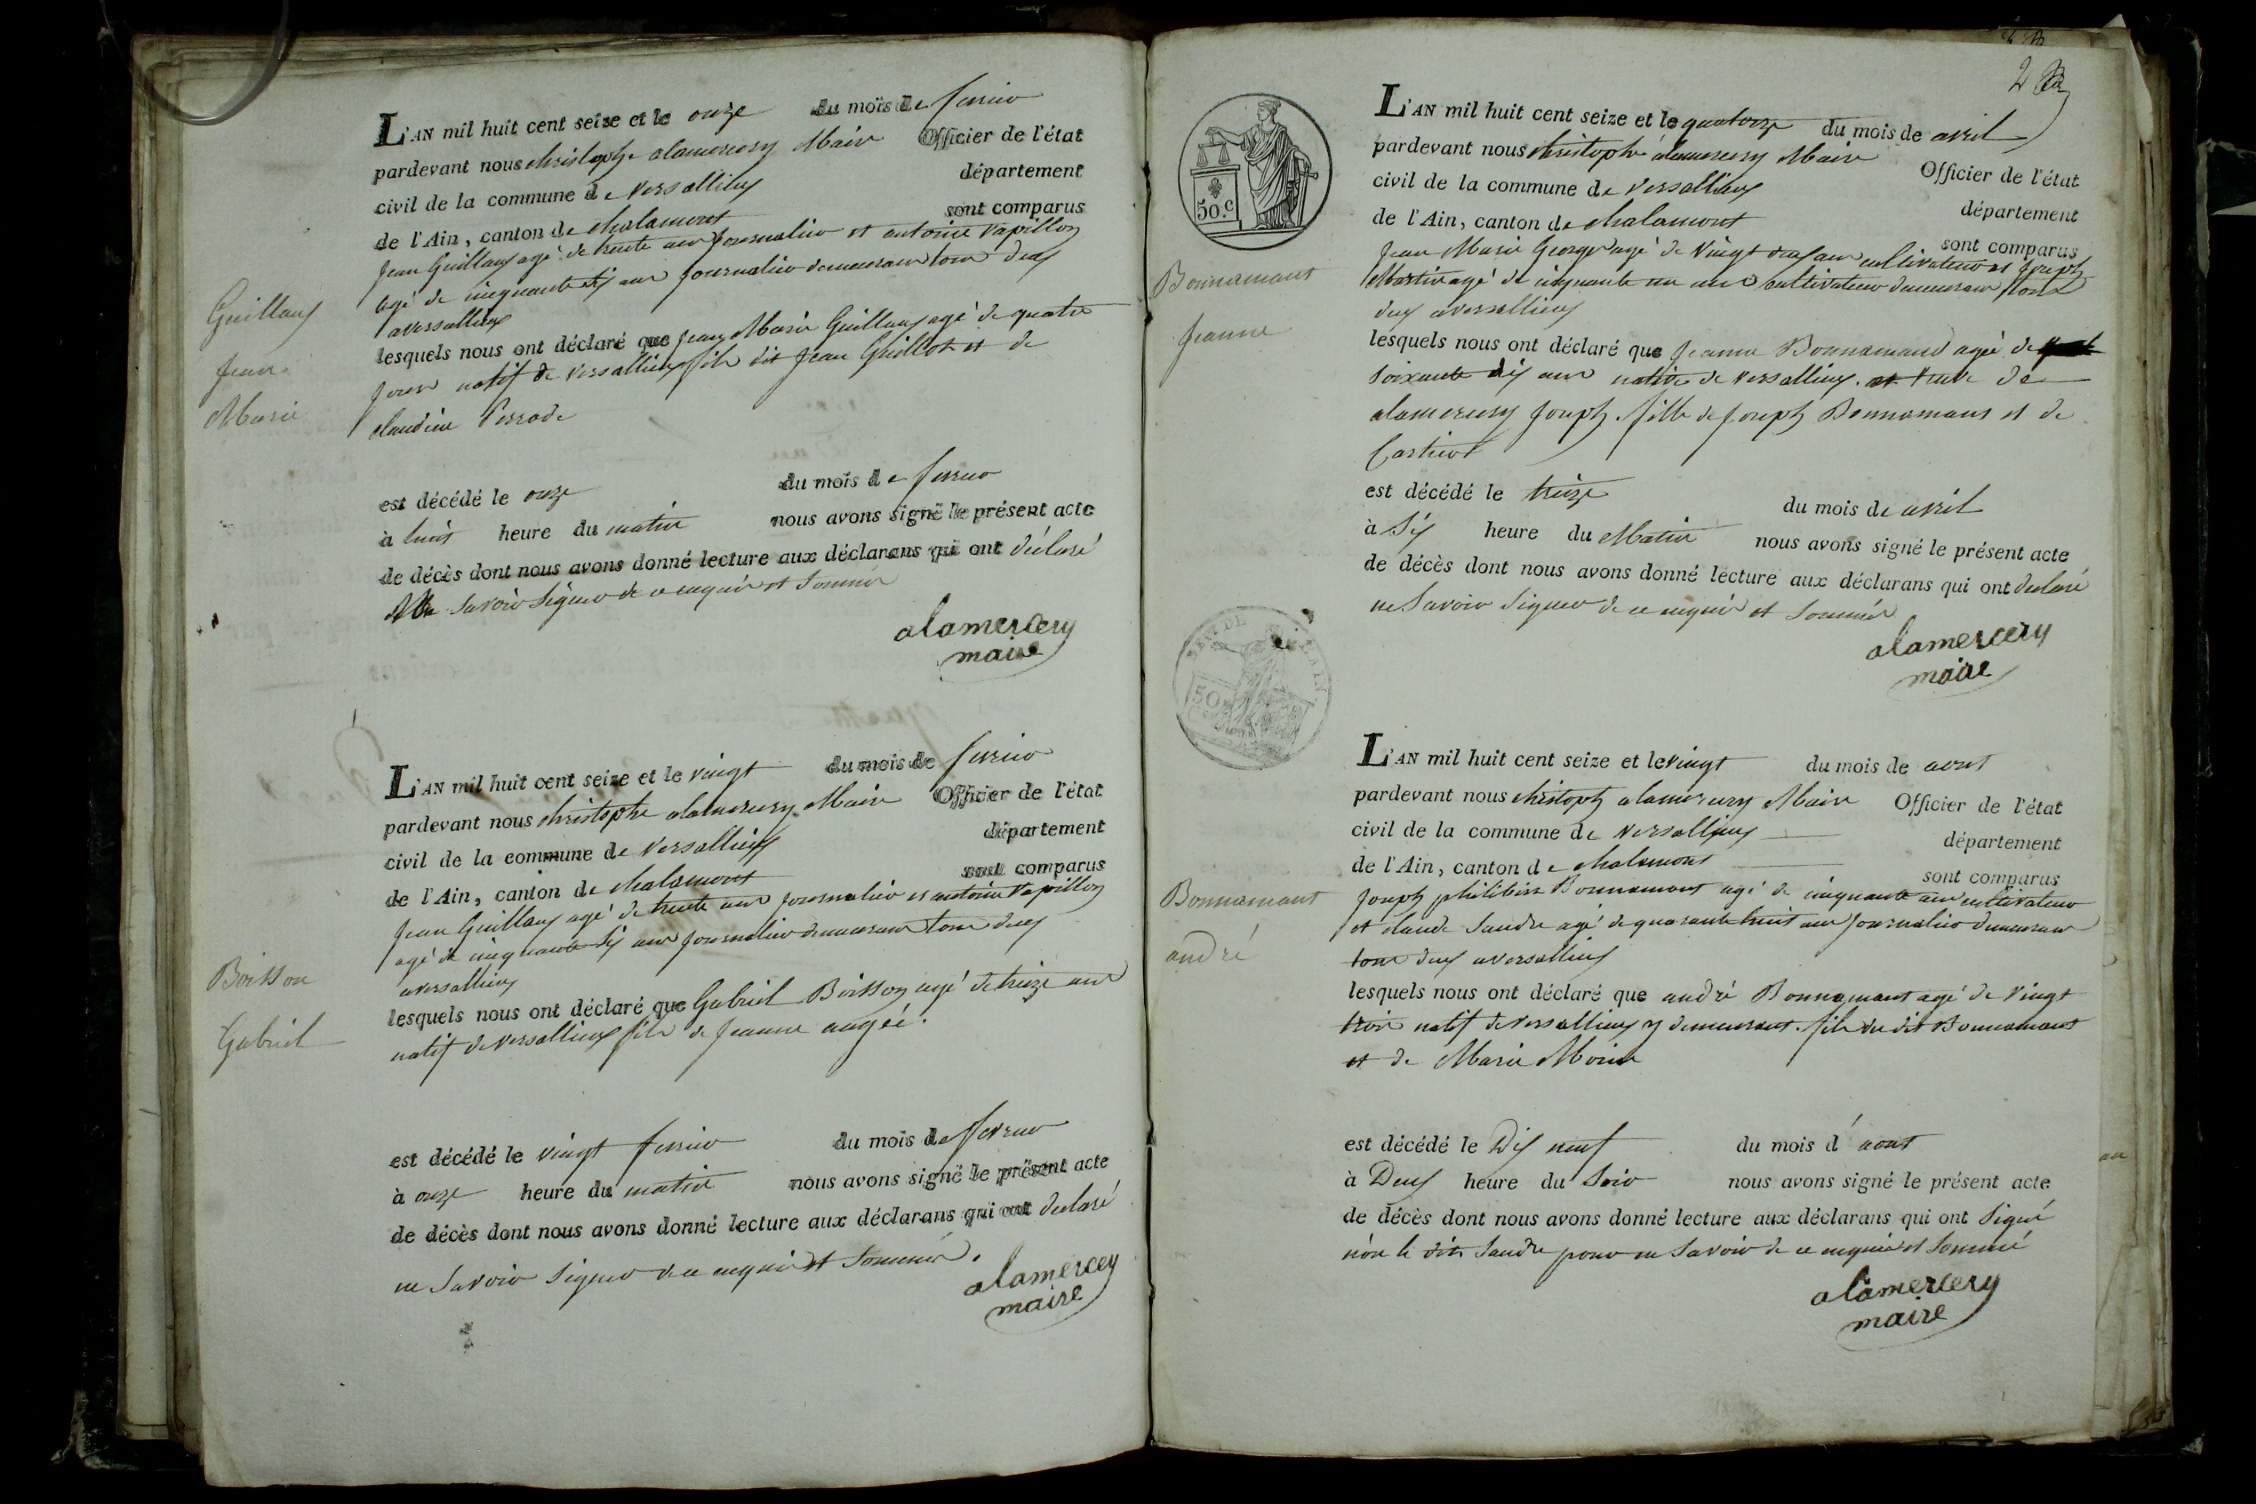 L'AN mil huit cent seize et le onze du mois de fevrier
pardevant nous christophe alamercery Maire Officier de l'état
civil de la commune de versallieux département
de l'Ain, canton de chalamont sont comparus
jean Guillauz agé de trente ans journalier et antoine vapillon
agé de cinquante six ans journalier demeurans tous deux
a versallieux
Guillauz
jean
Marie
lesquels nous ont déclaré que jean Marie Guillauz agé de quatre
jours natif de versallieux fils dit jean Guillot et de
claudine Perrade
est décédé le onze du mois de fevrier
à huit heure du matin nous avons signé le présent acte
de décès dont nous avons donné lecture aux déclarans qui ont déclaré
ne savoir signer de ce enquis et sommés
alamercery
maire
L'AN mil huit cent seize et le vingt du mois de fevrier
pardevant nous christophe alamercery Maire Officier de l'état
civil de la commune de versallieux département
de l'Ain, canton de chalamont sont comparus
jean Guillauz agé de trente ans journalier et antoine vapillon
agé de cinquante six ans journalier demeurans tous deux
a versallieux
Boisson
Gabriel
lesquels nous ont déclaré que Gabriel Boisson agé de treize ans
natif de versallieux fils de jeanne augée.
est décédé le vingt fevrier du mois de fevrier
à onze heure du matin nous avons signé le présent acte
de décès dont nous avons donné lecture aux déclarans qui ont declaré
ne savoir signer de ce enquis et sommés.
alamercery
maire
2
50.c
L'AN mil huit cent seize et le quatorze du mois de avril
pardevant nous christophe alamercery Maire Officier de l'état
civil de la commune de versallieux département
de l'Ain, canton de chalamont sont comparus
jean Marie George agé de vingt deux ans cultivateur et joseph
Martin agé de cinquante un ans cultivateur demeurans tous
deux a versallieux
Bonnamant
jeanne
lesquels nous ont déclaré que jeanne Bonnamand agée de
soixante dix ans native de versallieux. et veuve de
alamercery joseph. fille de joseph Bonnamant et de
Castiot
est décédé le treize du mois de avril
à Six heure du Matin nous avons signé le présent acte
de décès dont nous avons donné lecture aux déclarans qui ont declaré
ne Savoir signer de ce enquis et sommés
alamercery
maire
L'AN mil huit cent seize et le vingt du mois de aout
pardevant nous christoph alamercery Maire Officier de l'état
civil de la commune de versallieux département
de l'Ain, canton de chalamont sont comparus
joseph philibert Bonnamant agé de cinquante ans cultivateur
et claude Sandre agé de quarante huit ans journalier demeurans
tous deux a versallieux
Bonnamant
andré
lesquels nous ont déclaré que andré Bonnamant agé de vingt
trois natif de versallieux y demeurant. fils du dit Bonnamant
et de Marie Morin
est décédé le Dix neuf du mois d'aout
à Deux heure du Soir nous avons signé le présent acte
de décès dont nous avons donné lecture aux déclarans qui ont Signé
non le dit Sandre pour ne savoir de ce enquis et sommé
alamercery
maire